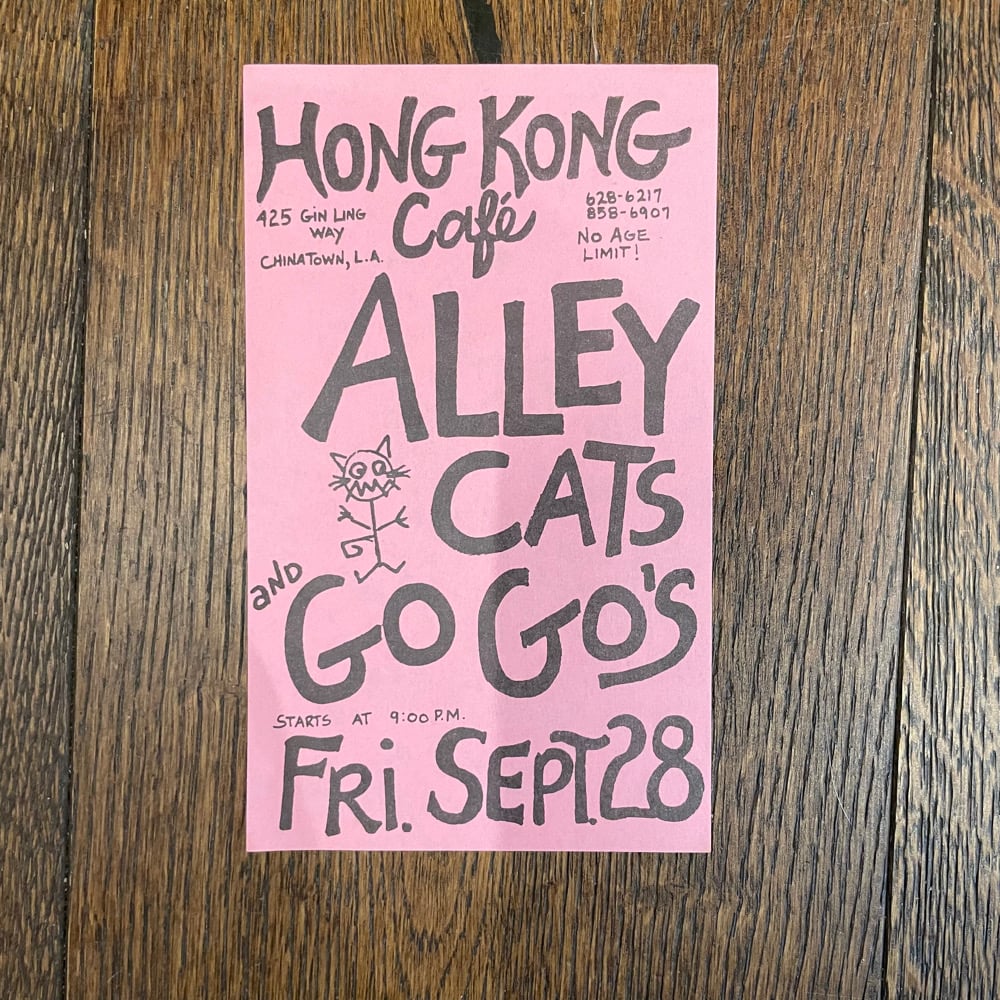 HONG KONG
Café
425 GIN LING
WAY
CHINATOWN, L.A.
628-6217
858-6907
NO AGE
LIMIT!
ALLEY
CATS
AND
GO GO'S
STARTS AT 9:00 P.M.
FRI. SEPT. 28